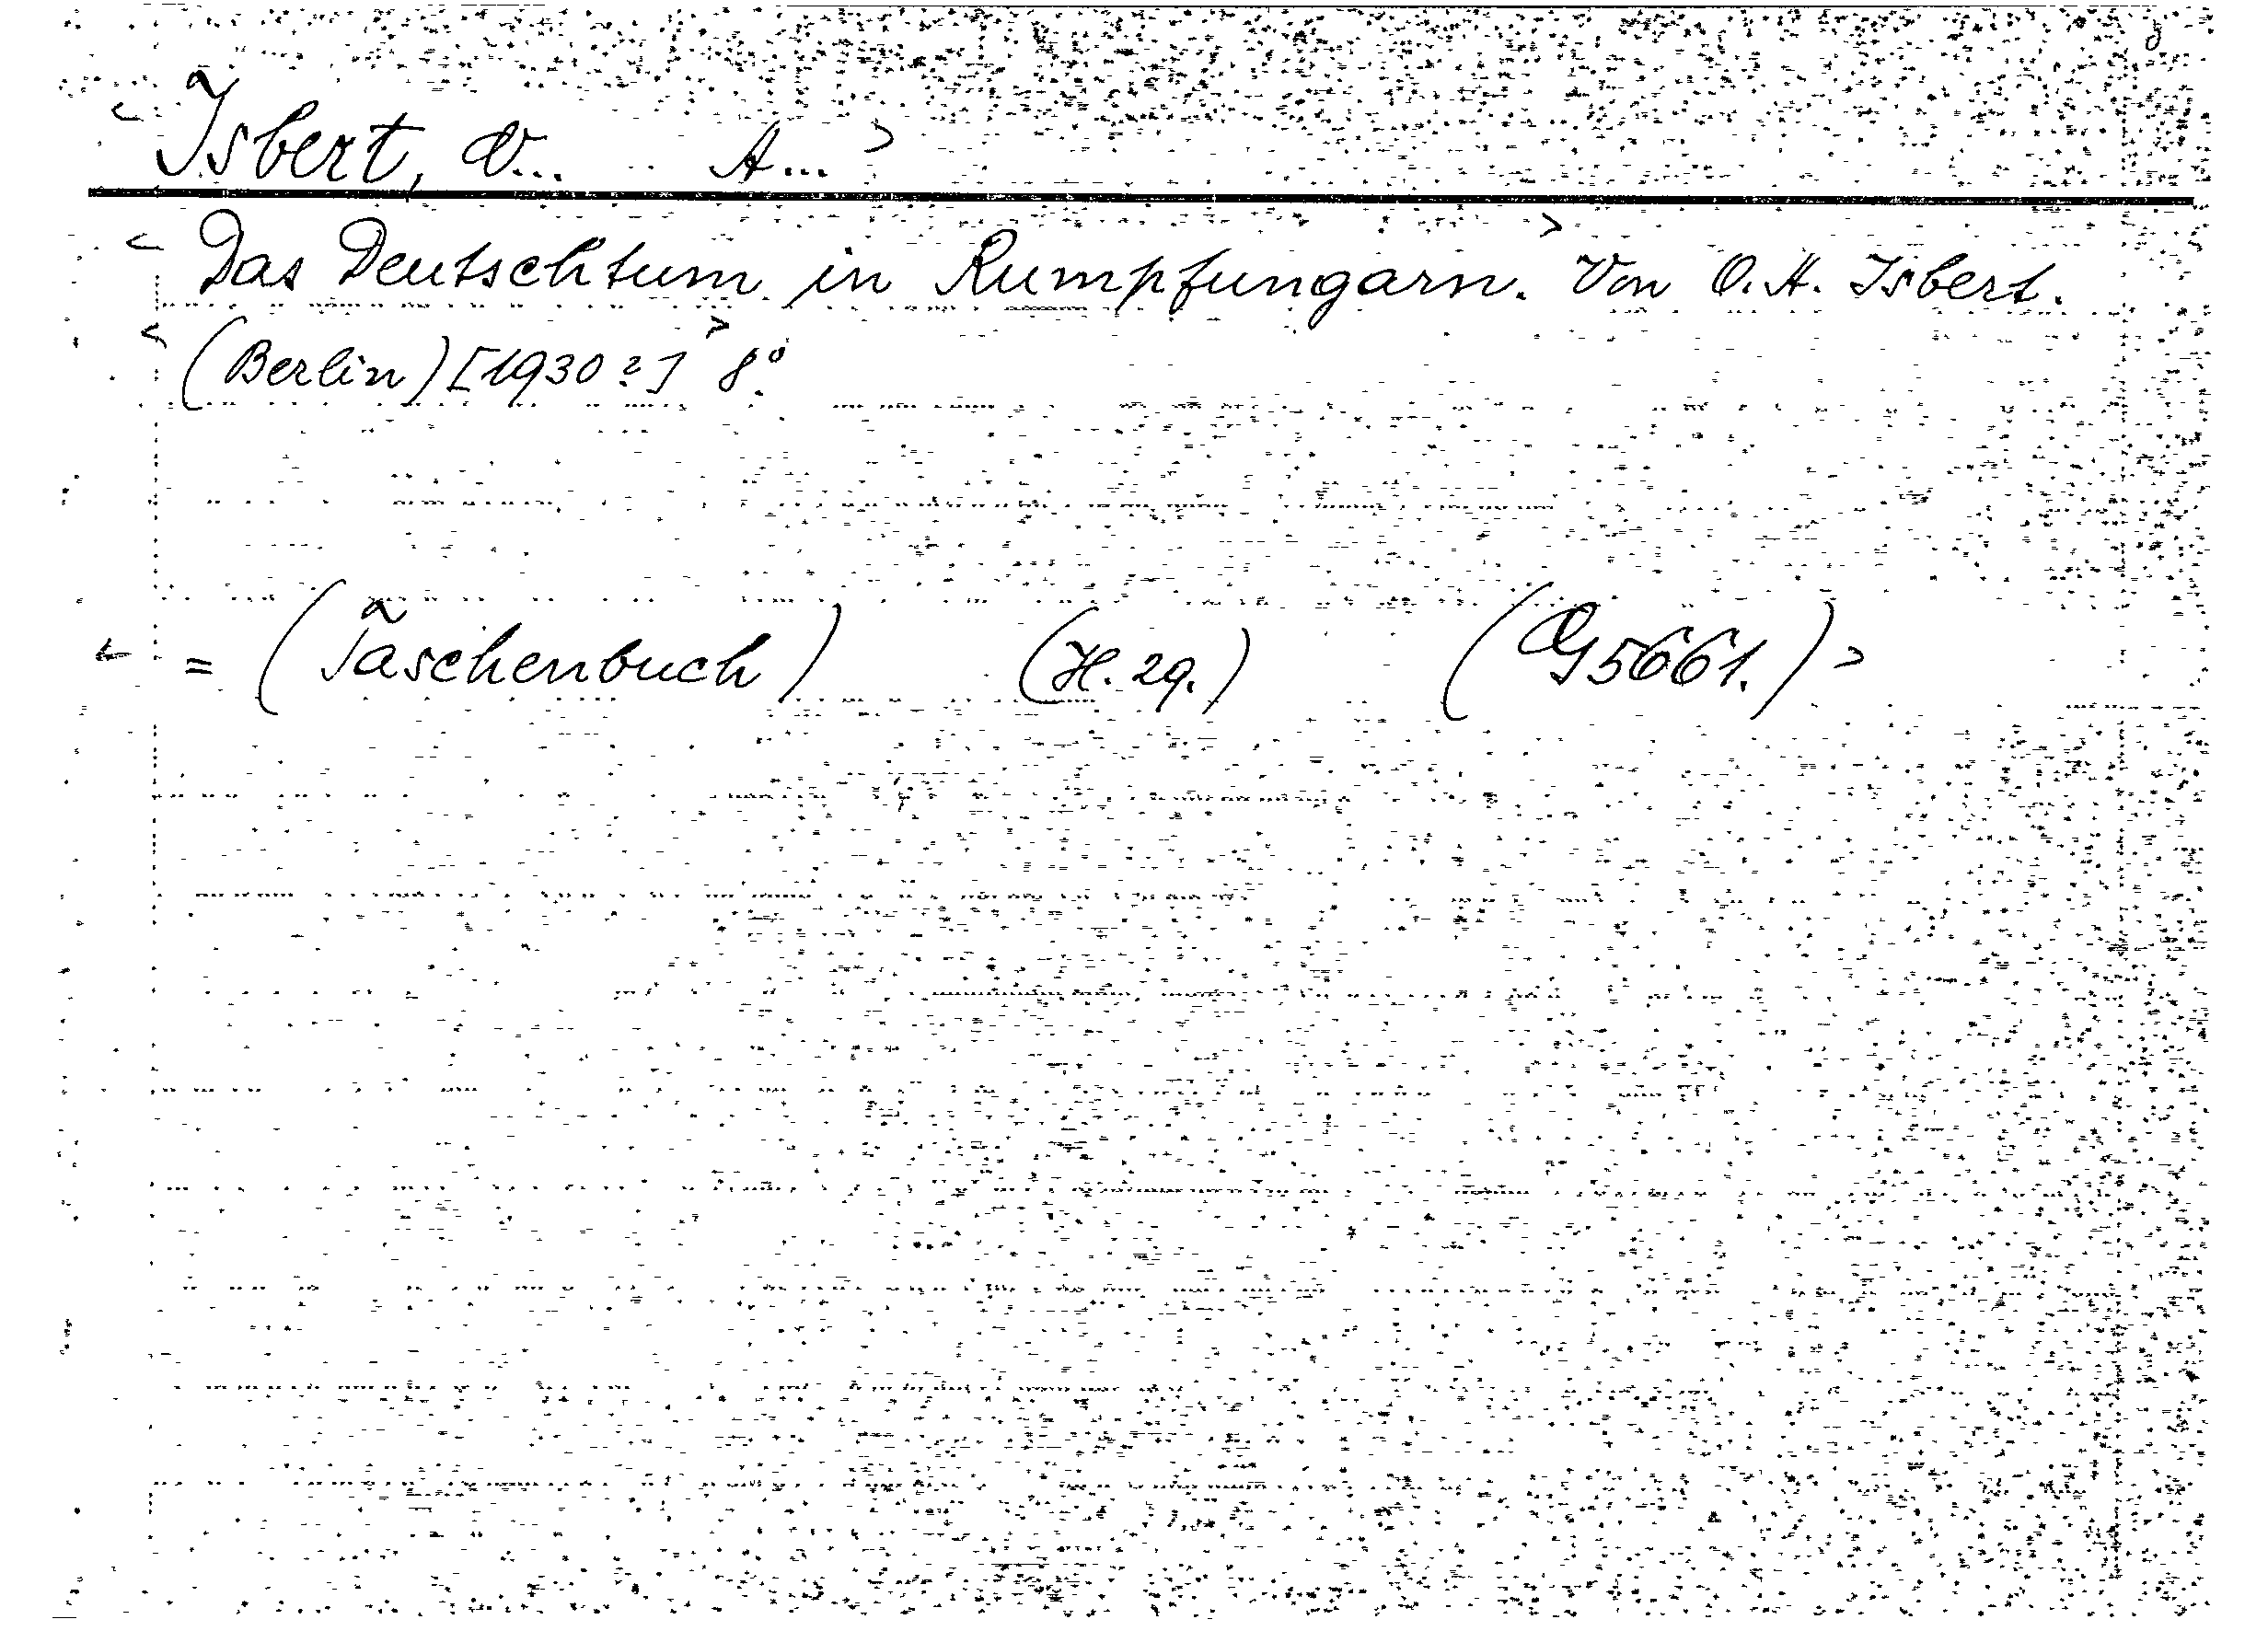 < Isbert, O... A... >
< Das Deutschtum in Rumpfungarn. > Von O. A. Isbert.
< (Berlin) [1930?] > 8°.
< = (Taschenbuch) (H. 29.) (G 5661.) >